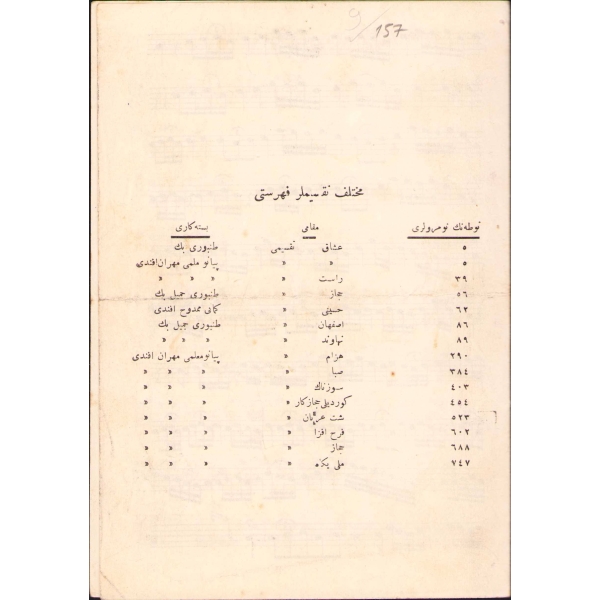 9/157
مختلف تقسيملر فهرستى
نوطه‌نك نومرولرى مقامى بسته‌كارى
٥ عشاق تقسيمى طنبورى بك
٥ » » پيانو ملمى مهران افندى
٣٩ راست » » » »
٥٦ حجاز » طنبورى جميل بك
٦٢ حسينى » كمانى ممدوح افندى
٨٦ اصفهان » طنبورى جميل بك
٨٩ نهاوند » » » »
٢٩٠ هزام » پيانو معلمى مهران افندى
٣٨٤ صبا » » » »
٤٠٣ سوزناك » » » »
٤٥٤ كورديلى حجازكار » » » »
٥٢٣ شت عربان » » » »
٦٠٢ فرح افزا » » » »
٦٨٨ حجاز » » » »
٧٤٧ ملى يكاه » » » »